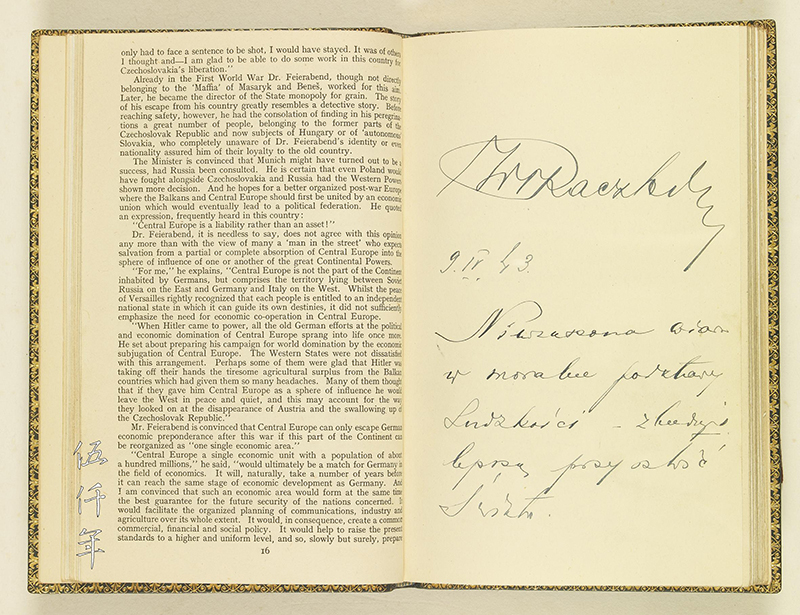 only had to face a sentence to be shot, I would have stayed. It was of others
I thought and—I am glad to be able to do some work in this country for
Czechoslovakia's liberation."
Already in the First World War Dr. Feierabend, though not directly
belonging to the 'Maffia' of Masaryk and Beneš, worked for this aim.
Later, he became the director of the State monopoly for grain. The story
of his escape from his country greatly resembles a detective story. Before
reaching safety, however, he had the consolation of finding in his peregrina-
tions a great number of people, belonging to the former parts of the
Czechoslovak Republic and now subjects of Hungary or of 'autonomous'
Slovakia, who completely unaware of Dr. Feierabend's identity or even
nationality assured him of their loyalty to the old country.
The Minister is convinced that Munich might have turned out to be a
success, had Russia been consulted. He is certain that even Poland would
have fought alongside Czechoslovakia and Russia had the Western Powers
shown more decision. And he hopes for a better organized post-war Europe
where the Balkans and Central Europe should first be united by an economic
union which would eventually lead to a political federation. He quoted
an expression, frequently heard in this country:
"Central Europe is a liability rather than an asset!"
Dr. Feierabend, it is needless to say, does not agree with this opinion
any more than with the view of many a 'man in the street' who expects
salvation from a partial or complete absorption of Central Europe into the
sphere of influence of one or another of the great Continental Powers.
"For me," he explains, "Central Europe is not the part of the Continent
inhabited by Germans, but comprises the territory lying between Soviet
Russia on the East and Germany and Italy on the West. Whilst the peace
of Versailles rightly recognized that each people is entitled to an independent
national state in which it can guide its own destinies, it did not sufficiently
emphasize the need for economic co-operation in Central Europe.
"When Hitler came to power, all the old German efforts at the political
and economic domination of Central Europe sprang into life once more.
He set about preparing his campaign for world domination by the economic
subjugation of Central Europe. The Western States were not dissatisfied
with this arrangement. Perhaps some of them were glad that Hitler was
taking off their hands the tiresome agricultural surplus from the Balkan
countries which had given them so many headaches. Many of them thought
that if they gave him Central Europe as a sphere of influence he would
leave the West in peace and quiet, and this may account for the way
they looked on at the disappearance of Austria and the swallowing up of
the Czechoslovak Republic."
Mr. Feierabend is convinced that Central Europe can only escape German
economic preponderance after this war if this part of the Continent can
be reorganized as "one single economic area."
"Central Europe a single economic unit with a population of about
a hundred millions," he said, "would ultimately be a match for Germany in
the field of economics. It will, naturally, take a number of years before
it can reach the same stage of economic development as Germany. And
I am convinced that such an economic area would form at the same time
the best guarantee for the future security of the nations concerned. It
would facilitate the organized planning of communications, industry and
agriculture over its whole extent. It would, in consequence, create a common
commercial, financial and social policy. It would help to raise the present
standards to a higher and uniform level, and so, slowly but surely, prepare
16
伍仟年
Raczkiewicz
9. IV 43.
Niewzruszona wiara
w moralne podstawy
Ludzkości - zbuduje
lepszą przyszłość
Świata.